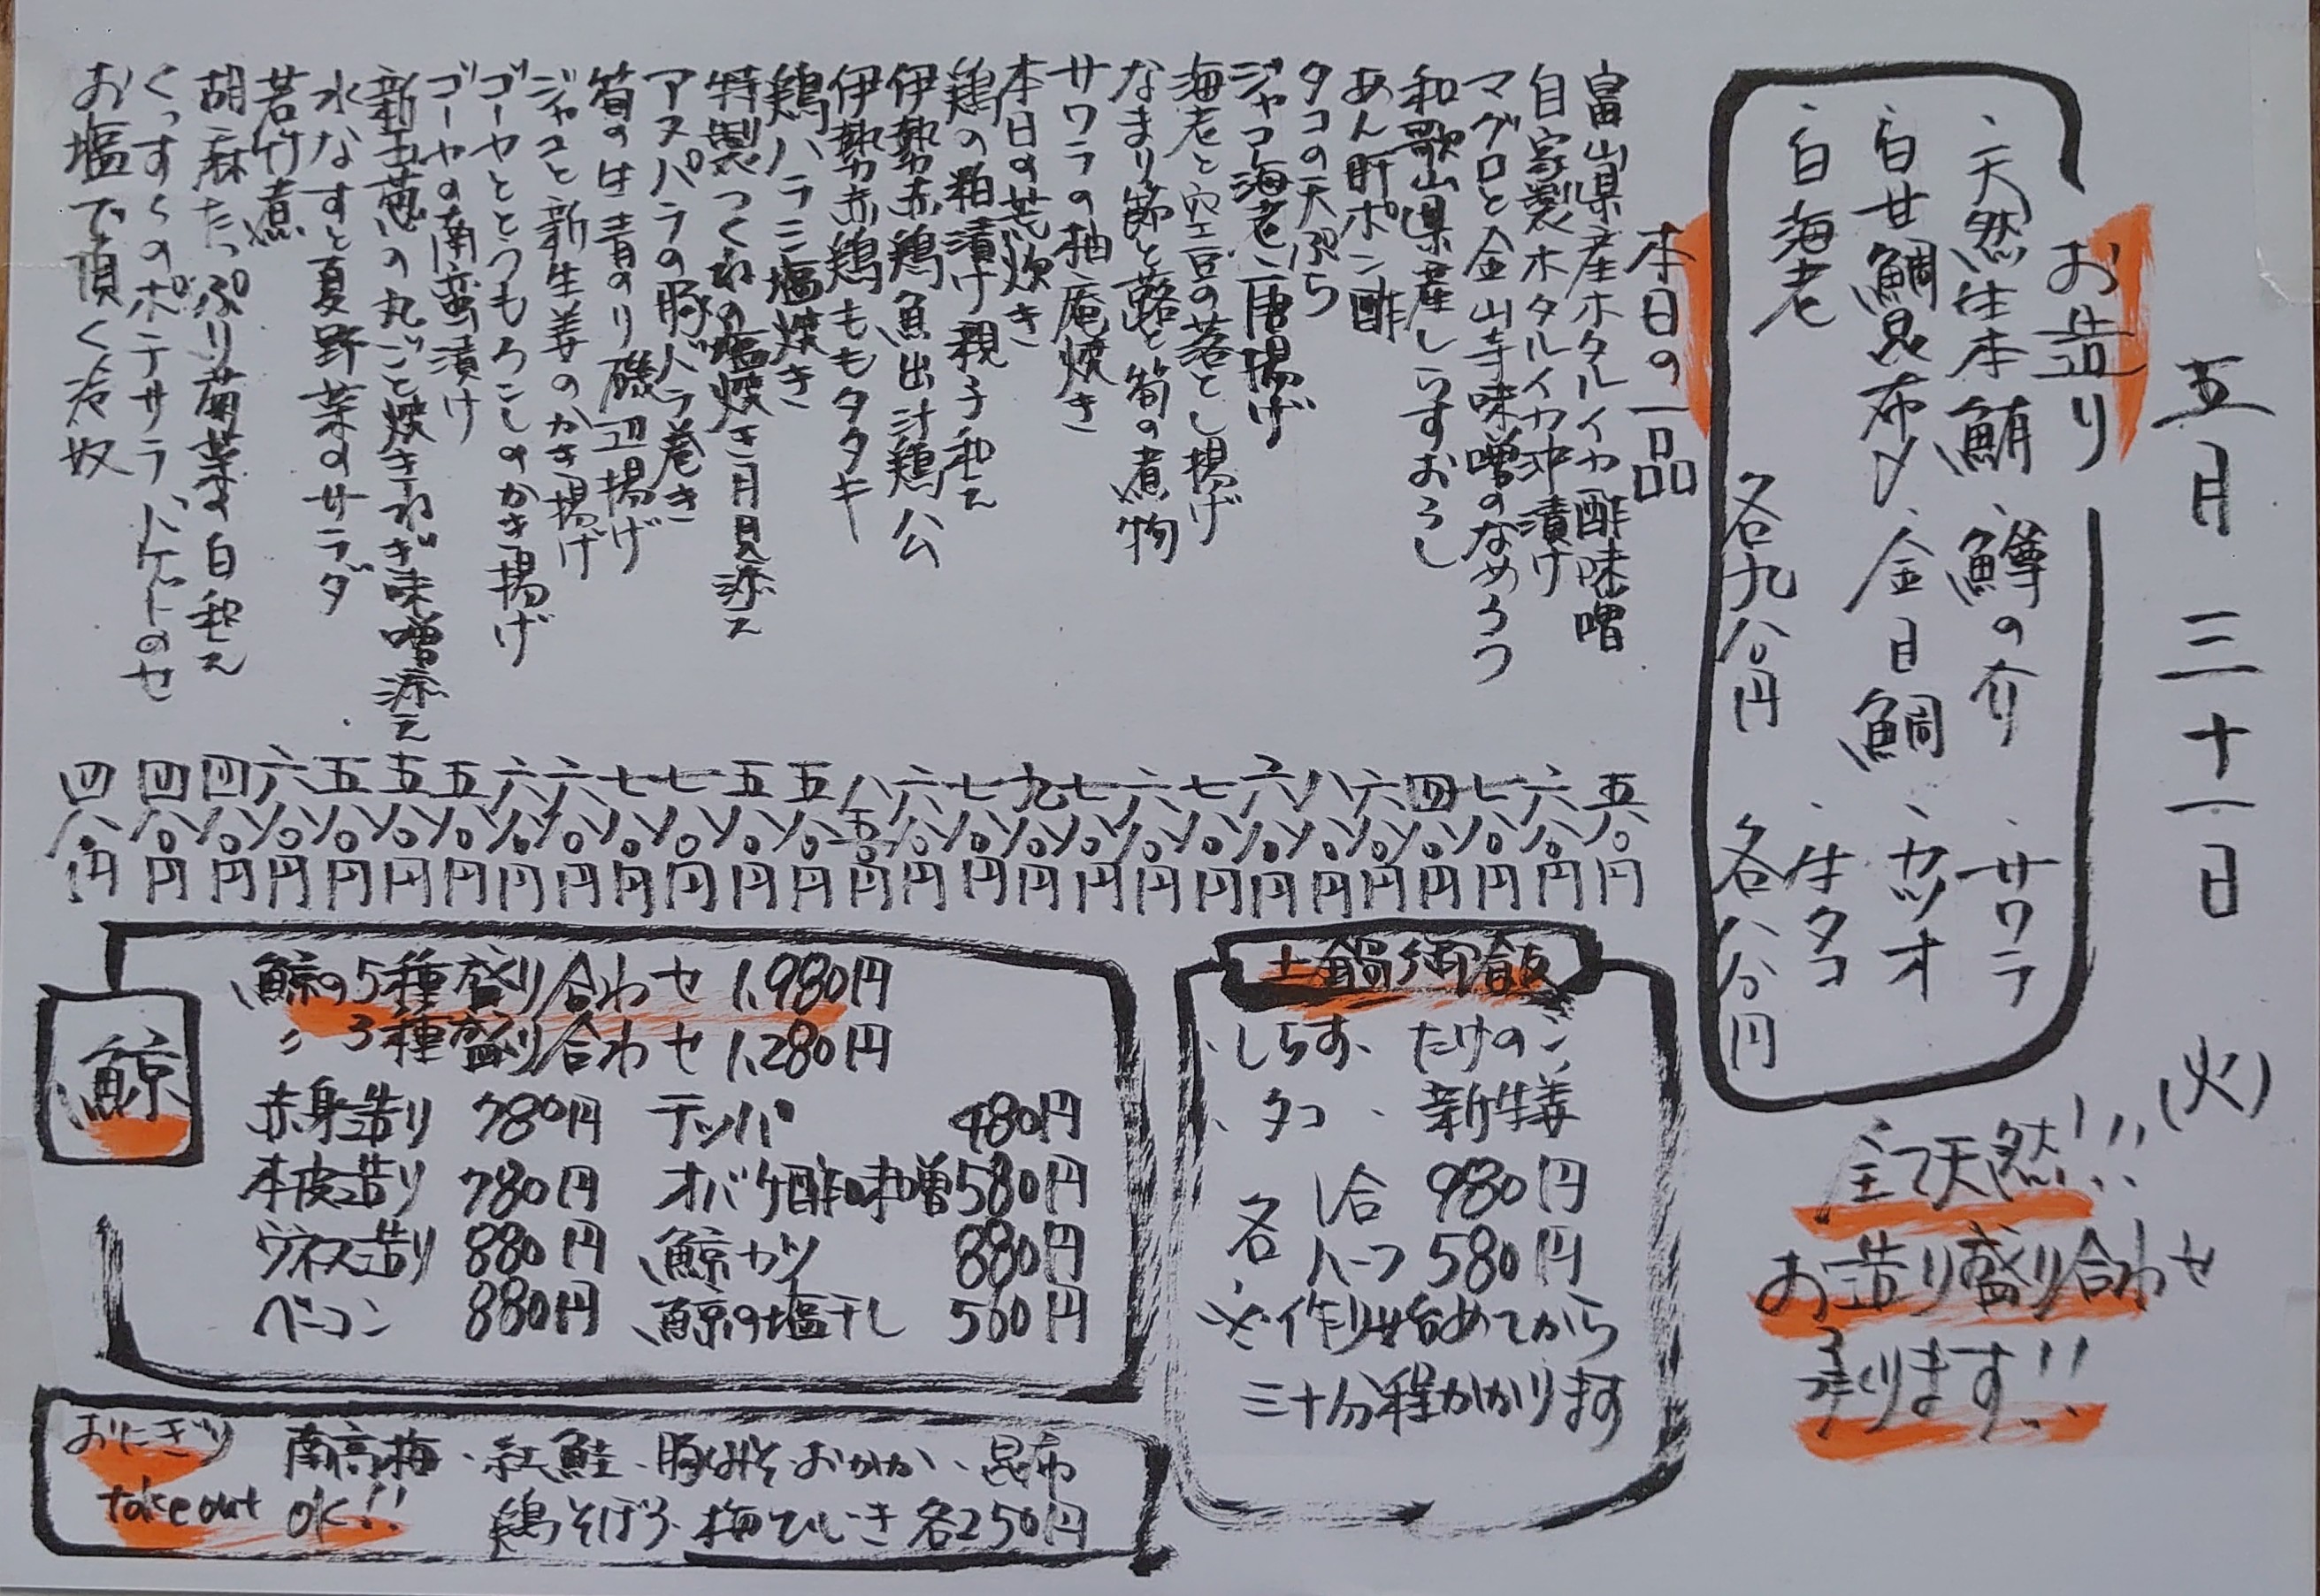 五月三十一日(火)
お造り
、天然生本鮪、鱒の介、サワラ
、白甘鯛昆布〆、金目鯛、カツオ
、白海老、生タコ
各九八〇円 各八八〇円
全て天然!!!
お造り盛り合わせ
承ります!!
本日の一品
富山県産ホタルイカ酢味噌 五八〇円
自家製ホタルイカ沖漬け 六八〇円
マグロと金山寺味噌のなめろう 七八〇円
和歌山県産しらすおろし 四八〇円
あん肝ポン酢 六八〇円
タコの天ぷら 八八〇円
ジャコ海老唐揚げ 六八〇円
海老と空豆の落とし揚げ 七八〇円
なまり節と蕗と筍の煮物 六八〇円
サワラの柚庵焼き 七八〇円
本日の荒炊き 九八〇円
鶏の粕漬け親子和え 七八〇円
伊勢赤鶏魚出汁鶏公 六八〇円
伊勢赤鶏ももタタキ 八五〇円
鶏ハラミ塩焼き 五八〇円
特製つくねの塩焼き月見添え 五八〇円
アスパラの豚バラ巻き 七八〇円
筍の生青のり磯辺揚げ 七八〇円
ジャコと新生姜のかき揚げ 六八〇円
ゴーヤととうもろこしのかき揚げ 六八〇円
ゴーヤの南蛮漬け 五八〇円
新玉葱の丸ごと焼きねぎ味噌添え 五八〇円
水なすと夏野菜のサラダ 五八〇円
若竹煮 六八〇円
胡麻たっぷり菊菜の白和え 四八〇円
くっすぐのポテサラ バゲットのせ 四八〇円
お塩で頂く冷奴 四八〇円
土鍋御飯
、しらす、たけのこ
、タコ、新生姜
各 1合 980円
ハーフ 580円
※作り始めてから
三十分程かかります
鯨
鯨の5種盛り合わせ 1,980円
〃 3種盛り合わせ 1,280円
赤身造り 780円 テッパ 480円
本皮造り 780円 オバケ酢味噌 580円
ウネス造り 880円 鯨カツ 880円
ベーコン 880円 鯨の塩干し 500円
おにぎり 南高梅、紅鮭、豚みそ、おかか、昆布
take out OK!! 鶏そぼろ、梅ひじき 各250円